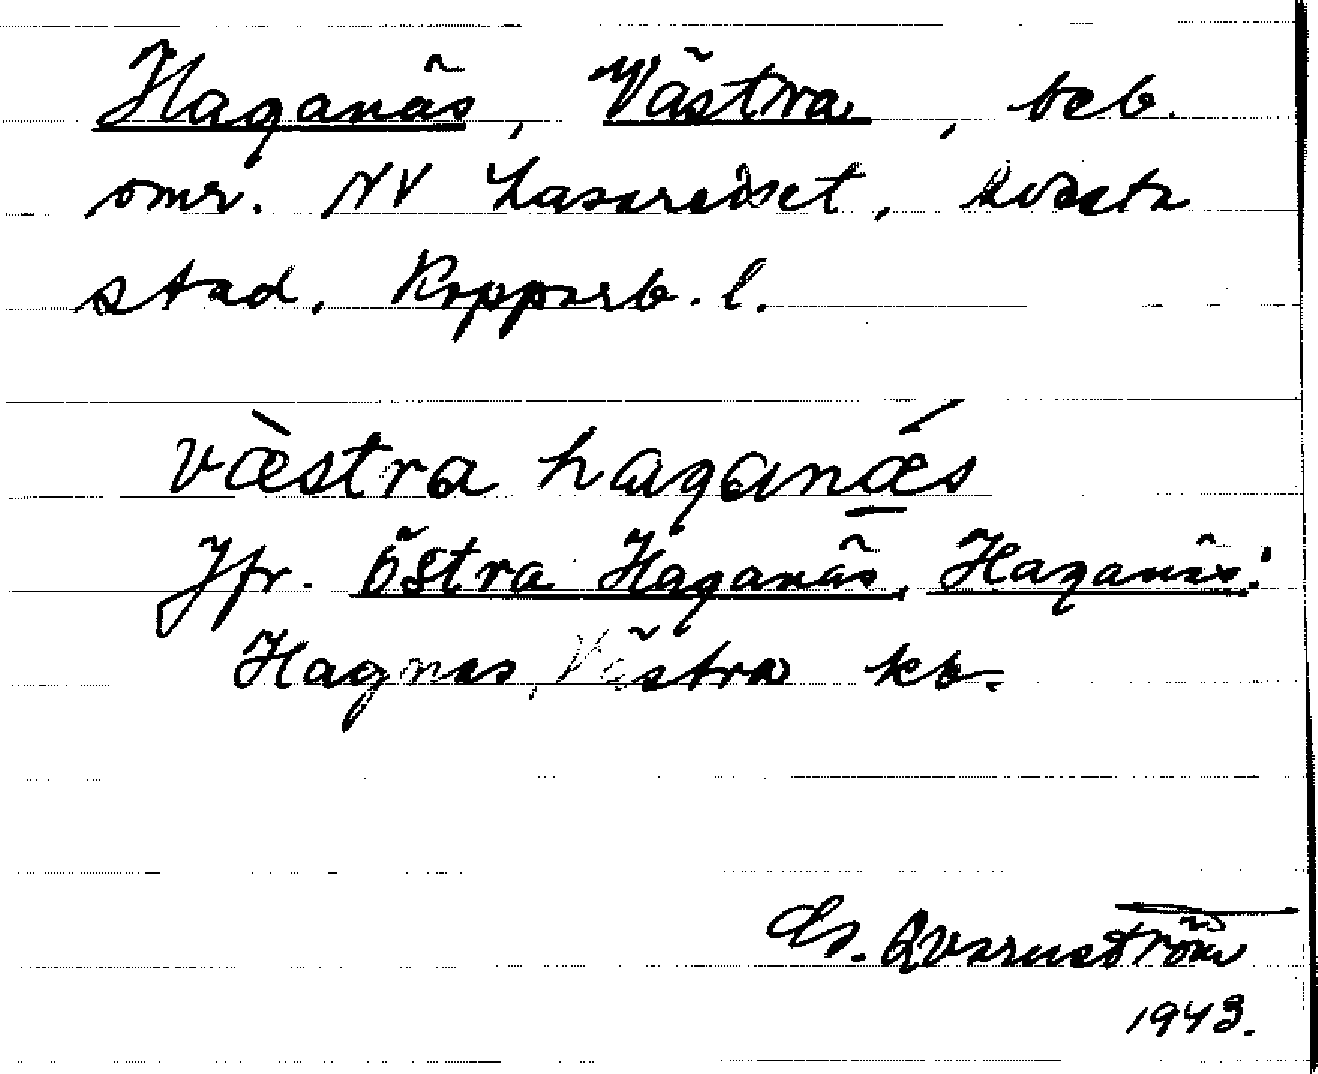 Haganäs, Västra, beb.
omr. NV Lasarettet, Avesta
stad. Kopparb. l.
væ̀stra haganǽs
Jfr. Östra Haganäs, Haganäs!
Hagnäs, Västra kb.
Es. Qvarnström
1943.